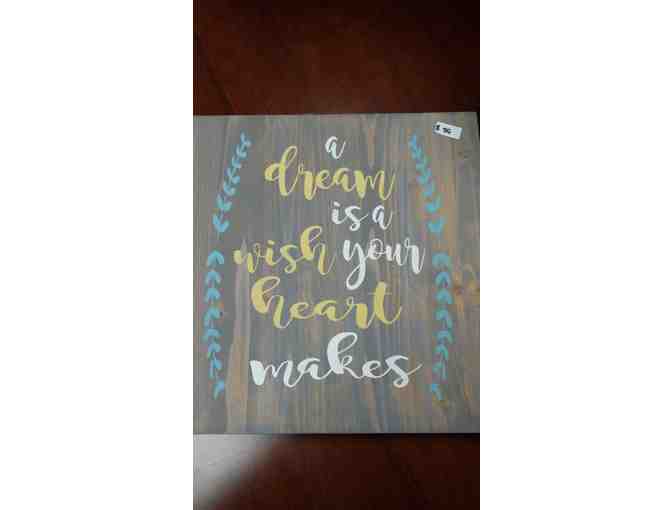 a
dream
is a
wish your
heart
makes